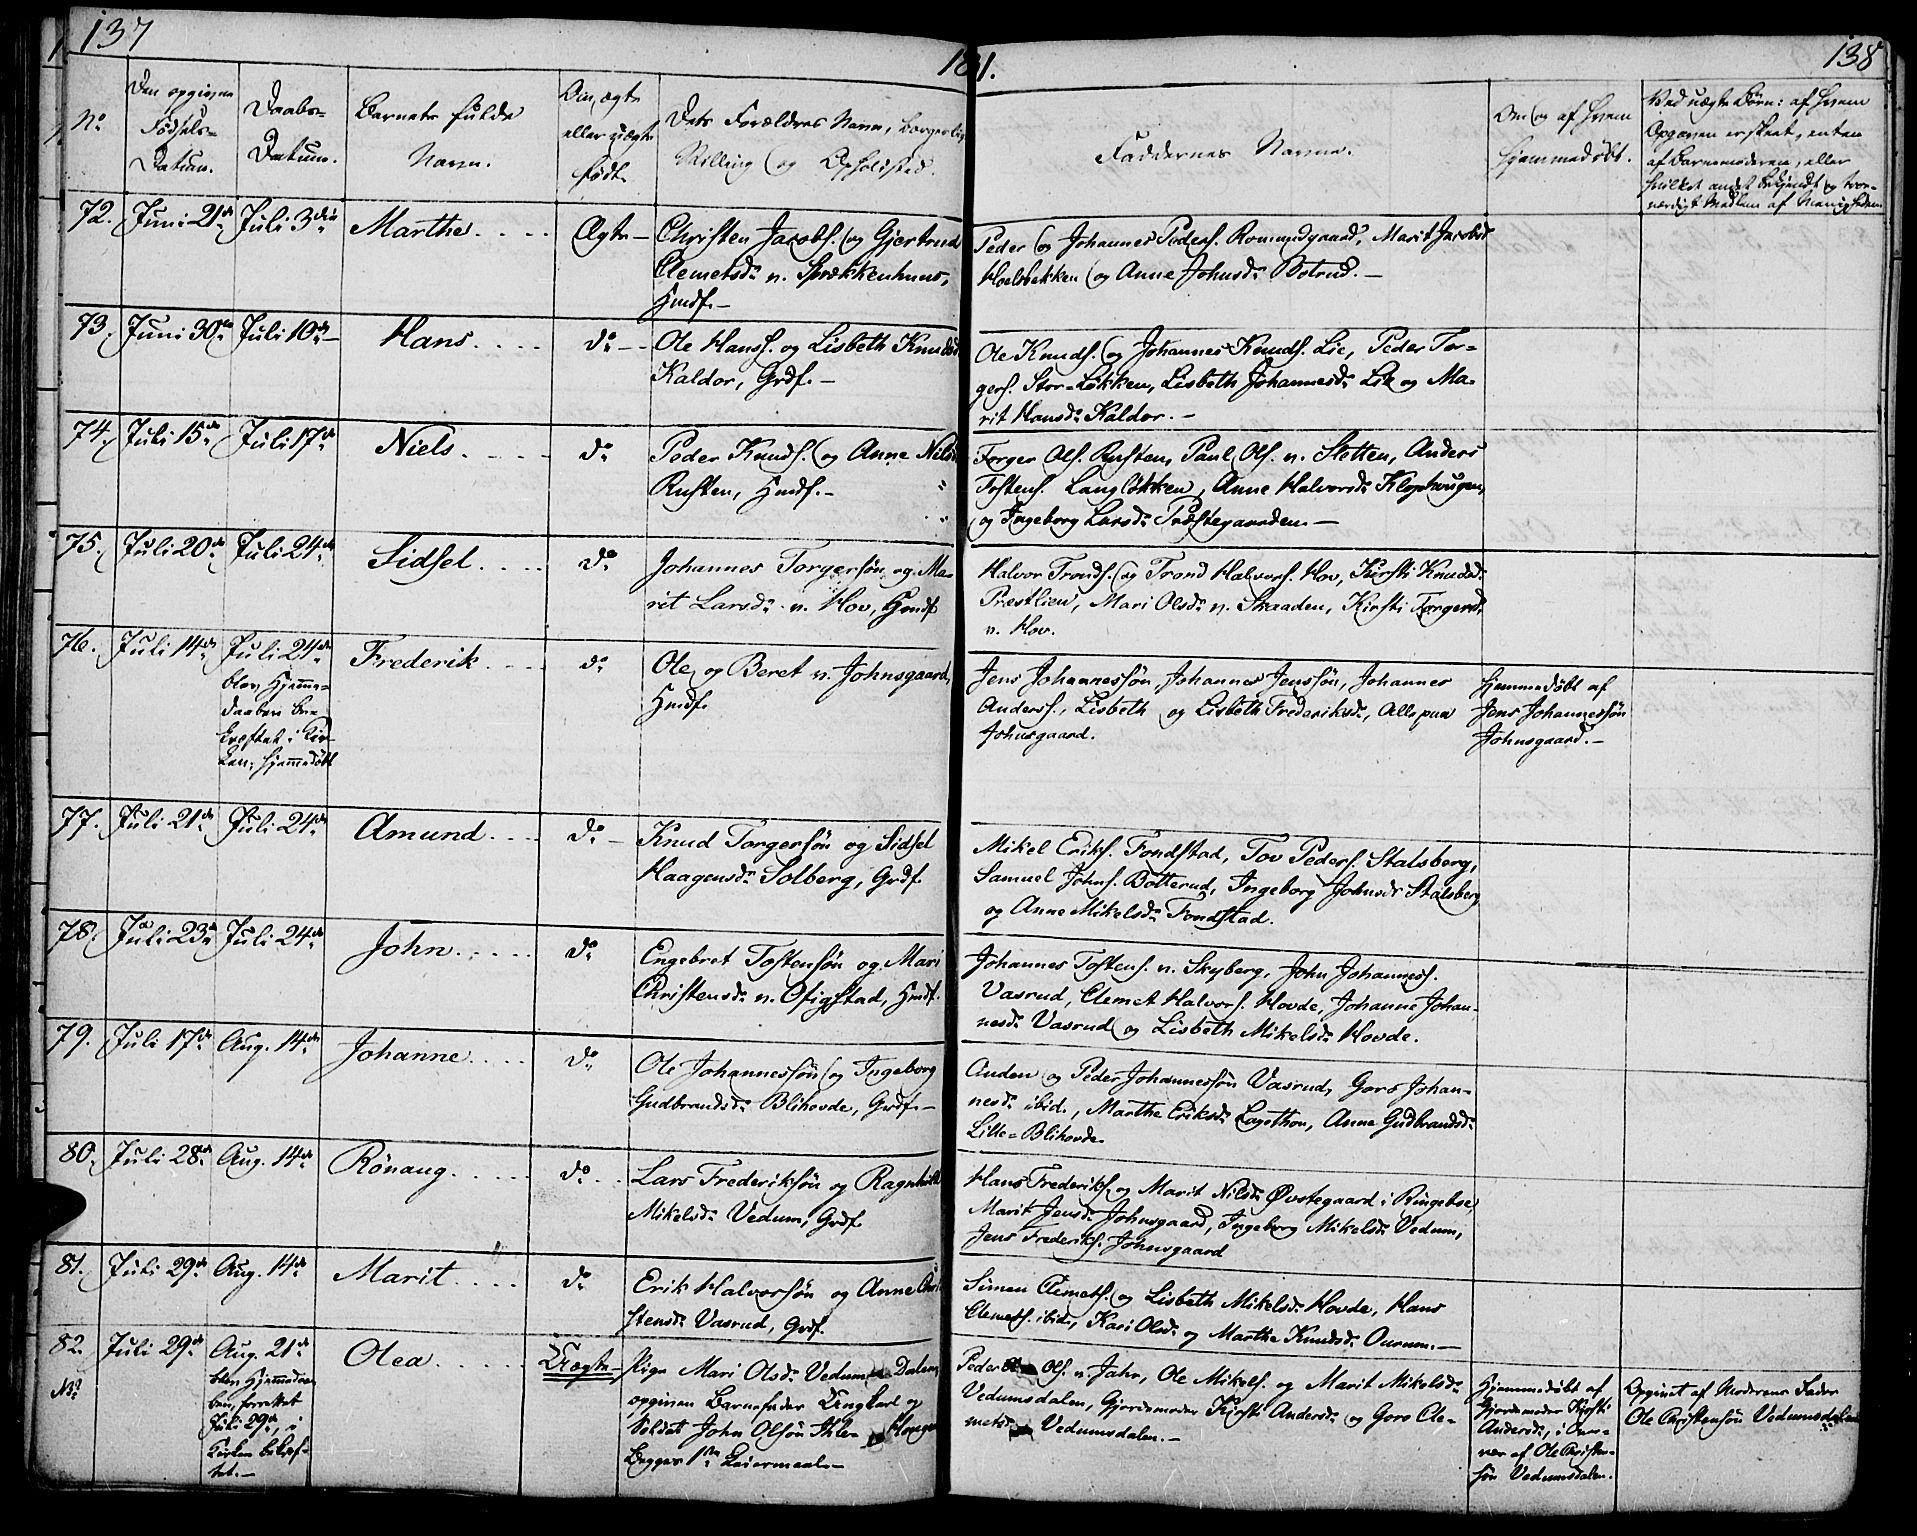 137
181.
138
No
Den opgivne Fødsels-Datum.
Daabs-Datum.
Barnets fulde Navn.
Om ægte eller uægte født.
Dets Forældres Navn, borgerlig Stilling og Opholdsted.
Faddernes Navne.
Om og af hvem hjemmedøbt.
Ved uægte Børn: af hvem Opgaven er skeet, enten af Barnemoderen, eller hvilket andet bekjendt og troværdigt Medlem af Menigheden
72. Juni 21de Juli 3die Marthe. Ægte
Christen Jacobs. og Gjertrud
Clemetsdr. n. Sprækkenhuus,
Hmdf.
Peder og Johannes Peders. Romundgaard, Marit Jacobsdr
Hoelsbekken og Anne Johnsdr. Botrud.
73. Juni 30te Juli 10de Hans. do
Ole Hanss. og Lisbeth Knudsdr
Kaldor, Grdf.
Ole Knuds. og Johannes Knuds. Lie, Peder Tor-
gers. Stor-Løkken, Lisbeth Johannesdr. Lie og Ma-
rit Hansdr. Kaldor.
74. Juli 15de Juli 17de Niels. do
Peder Knuds. og Anne Nilsdr
Rusten, Hmdf.
Torger Ols. Rusten, Paul Ols. n. Sletten, Anders
Tostens. Langløkken, Anne Halvorsdr. Klophaugen,
og Ingeborg Larsdr. Præstegaarden.
75. Juli 20de Juli 24de Sidsel. do
Johannes Torgersøn og Ma-
rit Larsdr. n. Hov, Hmdf.
Halvor Tronds. og Trond Halvors. Hov, Kirsti Knudsdr.
Præstlien, Mari Olsdr. n. Skaaden, Kirsti Torgersdr.
n. Hov.
76. Juli 14de Juli 24de Frederik. do
blev Hjemme-
daaben be-
kræftet i Kir-
ken, hjemmedøbt
Ole og Beret n. Johnsgaard,
Hmdf.
Jens Johannessøn, Johannes Jenssøn, Johannes
Anders., Lisbeth og Lisbeth Frederiksdr., Alle paa
Johnsgaard.
Hjemmedøbt af
Jens Johannessøn
Johnsgaard.
77. Juli 21de Juli 24de Amund. do
Knud Torgersøn og Sidsel
Haagensdr. Solberg, Grdf.
Mikel Eriks. Fondstad, Tov Peders. Stalsberg,
Samuel Johns. Botterud, Ingeborg Johnsdr. Stalsberg
og Anne Mikelsdr. Fondstad.
78. Juli 23de Juli 24de John. do
Engebret Tostensøn og Mari
Christensdr. n. Ofigstad, Hmdf.
Johannes Tostens. n. Skyberg, John Johanness.
Vasrud, Clemet Halvors. Hovde, Johanne Johan-
nesdr. Vasrud og Lisbeth Mikelsdr. Hovde.
79. Juli 17de Aug. 14de Johanne. do
Ole Johannessøn og Ingeborg
Gudbrandsdr. Blihovde, Grdf.
Anden og Peder Johannessøn Vasrud, Goro Johan-
nesdr. ibid., Marthe Eriksdr. Løgthon, Anne Gudbrandsdr.
Lille-Blihovde.
80. Juli 28de Aug. 14de Rønaug. do
Lars Frederiksøn og Ragnhild
Mikelsdr. Vedum, Grdf.
Hans Frederiks. og Marit Nilsdr. Øvstegaard i Ringeboe
Marit Jensdr. Johnsgaard, Ingeborg Mikelsdr. Vedum,
Jens Frederiks. Johnsgaard
81. Juli 29de Aug. 14de Marit. do
Erik Halvorsøn og Anne Chri-
stensdr. Vasrud, Grdf.
Simen Clemets. og Lisbeth Mikelsdr. Hovde, Hans
Clemets. ibid., Kari Olsdr. og Marthe Knudsdr. Ourum.
82. Juli 29de Aug. 21de Olea. Uægte
NB
blev Hjemmedaa-
ben, forrettet
Juli 29de, i
Kirken bekræf-
tet.
Pige Mari Olsdr. Vedums Dalen,
opgiven Barnefader Ungkarl og
Soldat John Olsøn Ihle Haugen
Begges 1ste Leiermaal.
Peder Ols. n. Jahr, Ole Mikels. og Marit Mikelsdr.
Vedumsdalen, Gjordemoder Kirsti Andersdr. og Goro Cle-
metsdr. Vedumsdalen.
Hjemmedøbt af
Gjordemoder Kirsti
Andersdr., i Over-
vær af Ole Christen-
søn Vedumsdalen.
Opgivet af Moderens Fader
Ole Christensøn Vedumsdalen